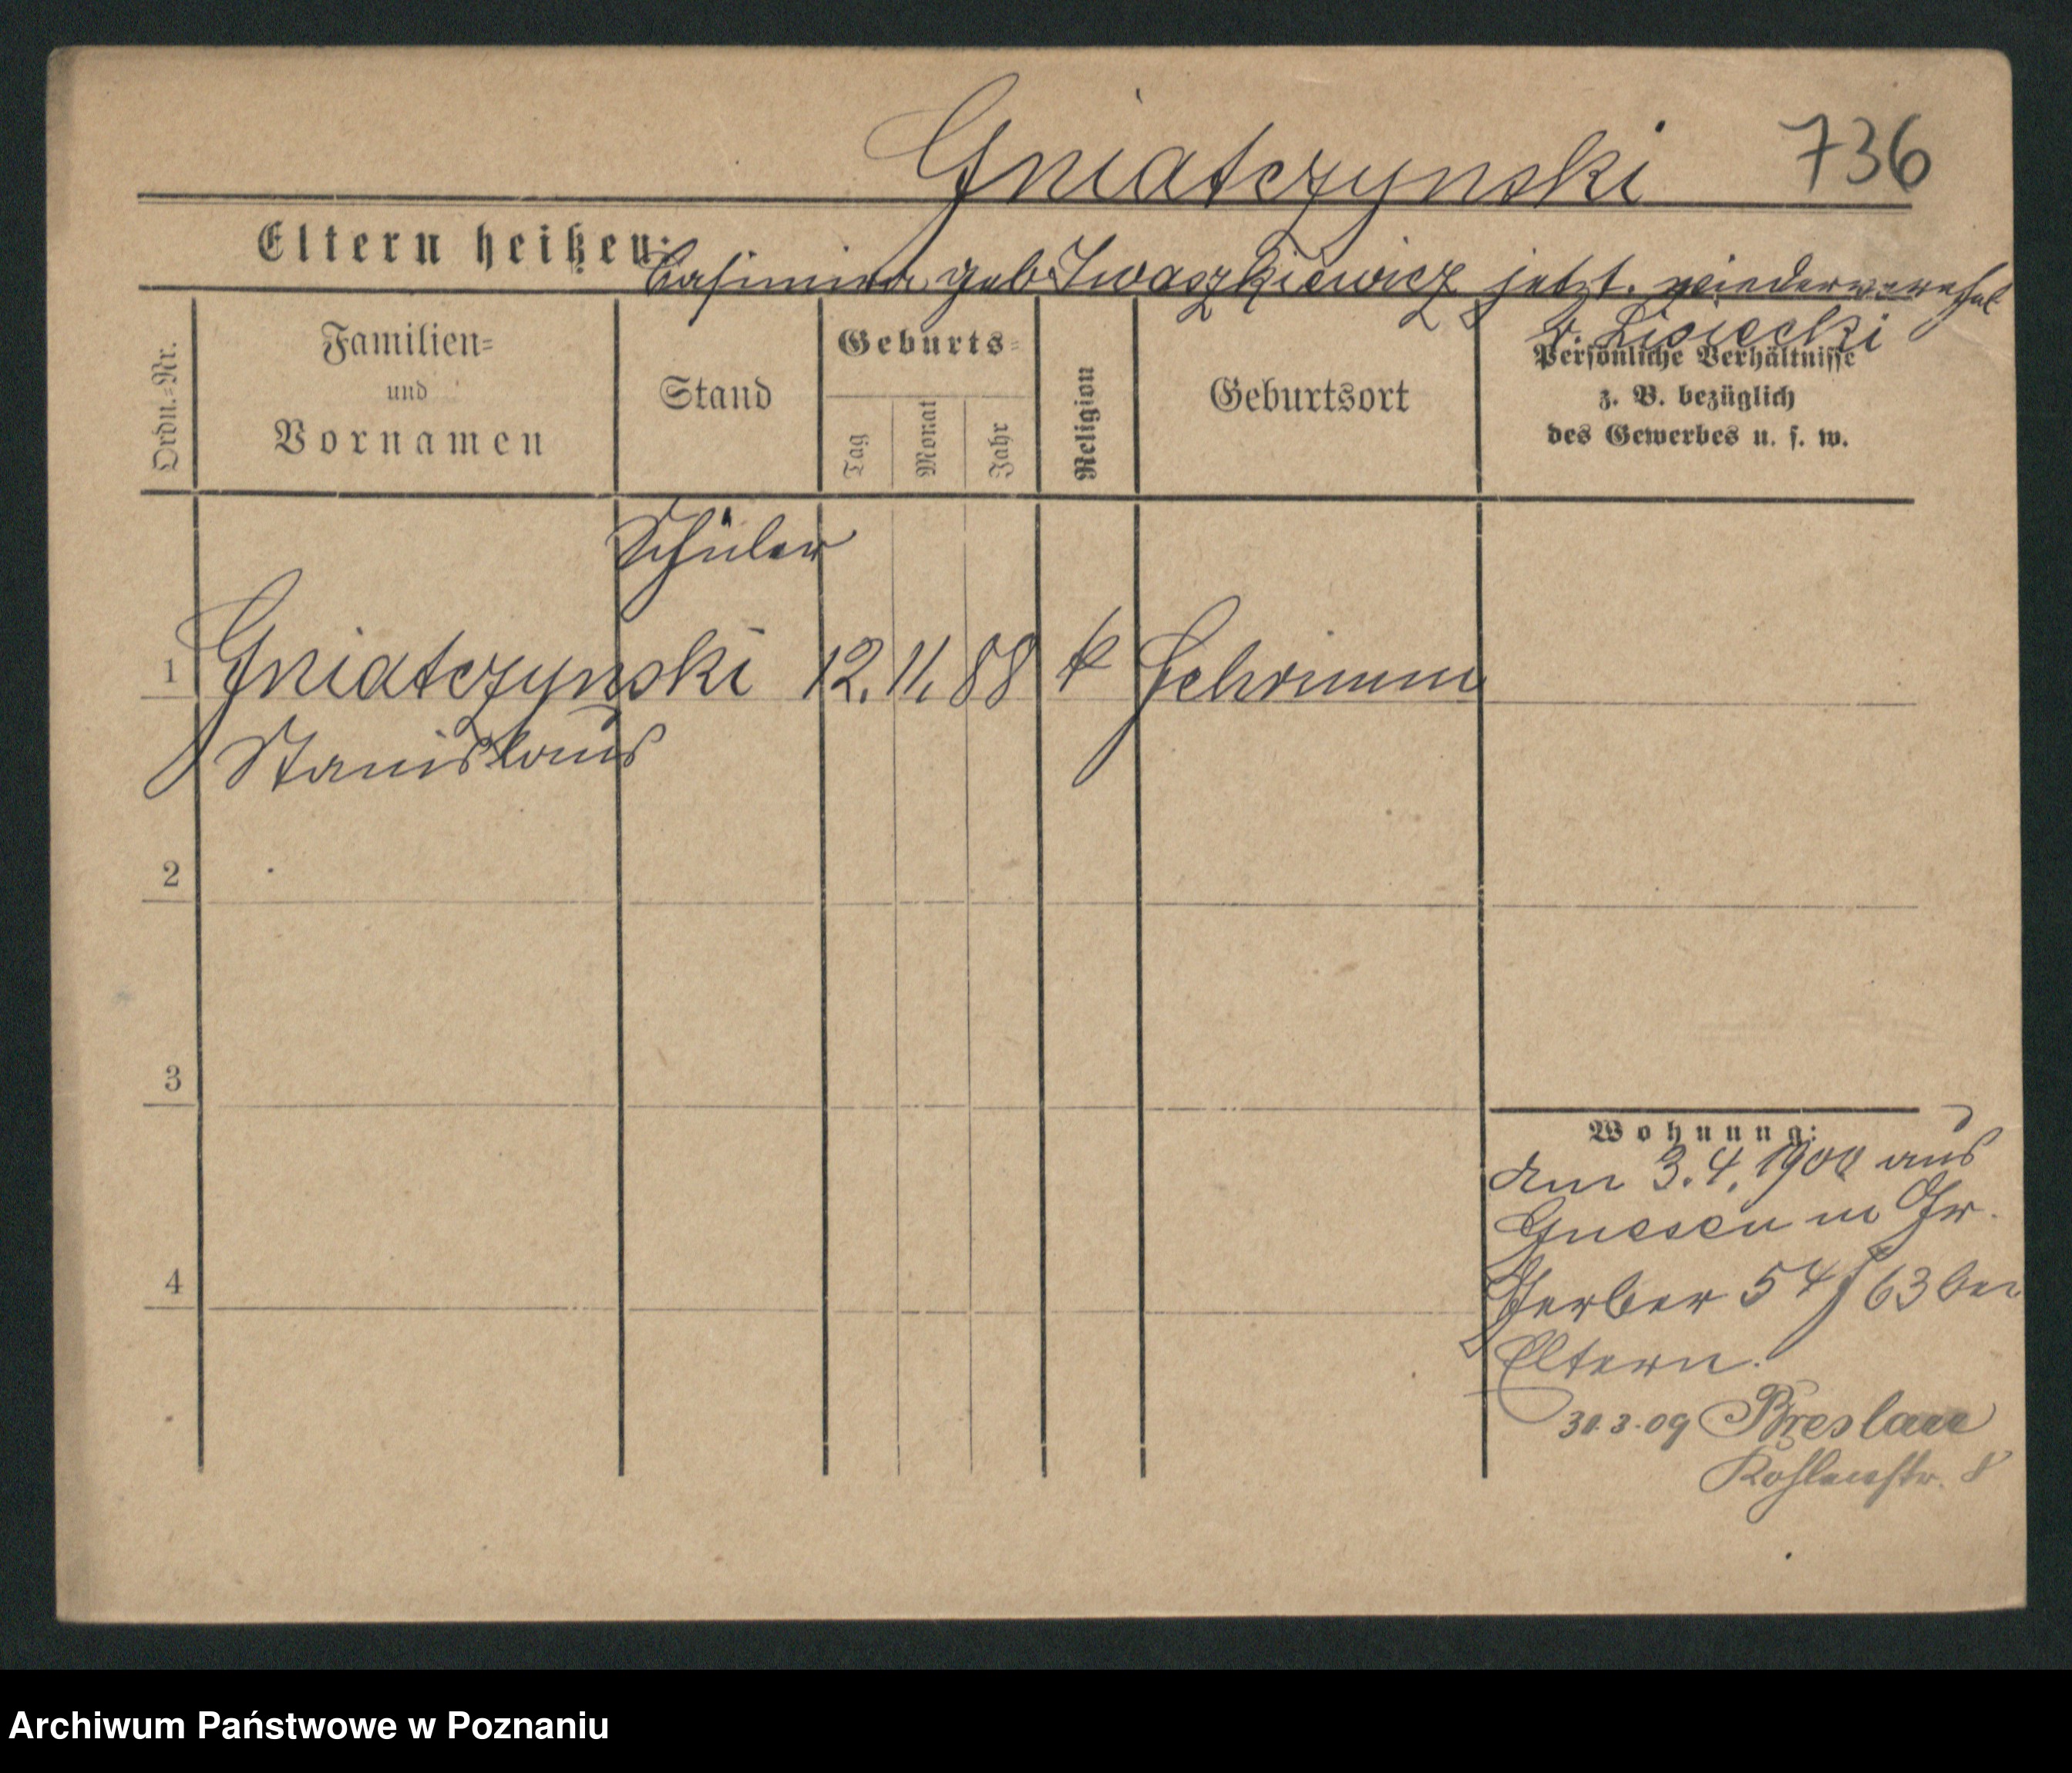 Gniatczynski 736
Eltern heißen: Casimira geb Iwaszkiewicz jetzt.
v. Lisiecki
Ordn.=Nr.
Familien=
und
Vornamen
Stand
Geburts=
Tag
Monat
Jahr
Religion
Geburtsort
Persönliche Verhältnisse
z. B. bezüglich
des Gewerbes u. s. w.
Schüler
1 Gniatczynski 12. 11. 88 k Schrimm
Stanislaus
2
3
4
Wohnung:
Am 3. 4. 1900 aus
Gnesen n Gr.
Gerber 54/63 bei
Eltern.
30.3.09 Breslau
Kohlenstr. 8
Archiwum Państwowe w Poznaniu